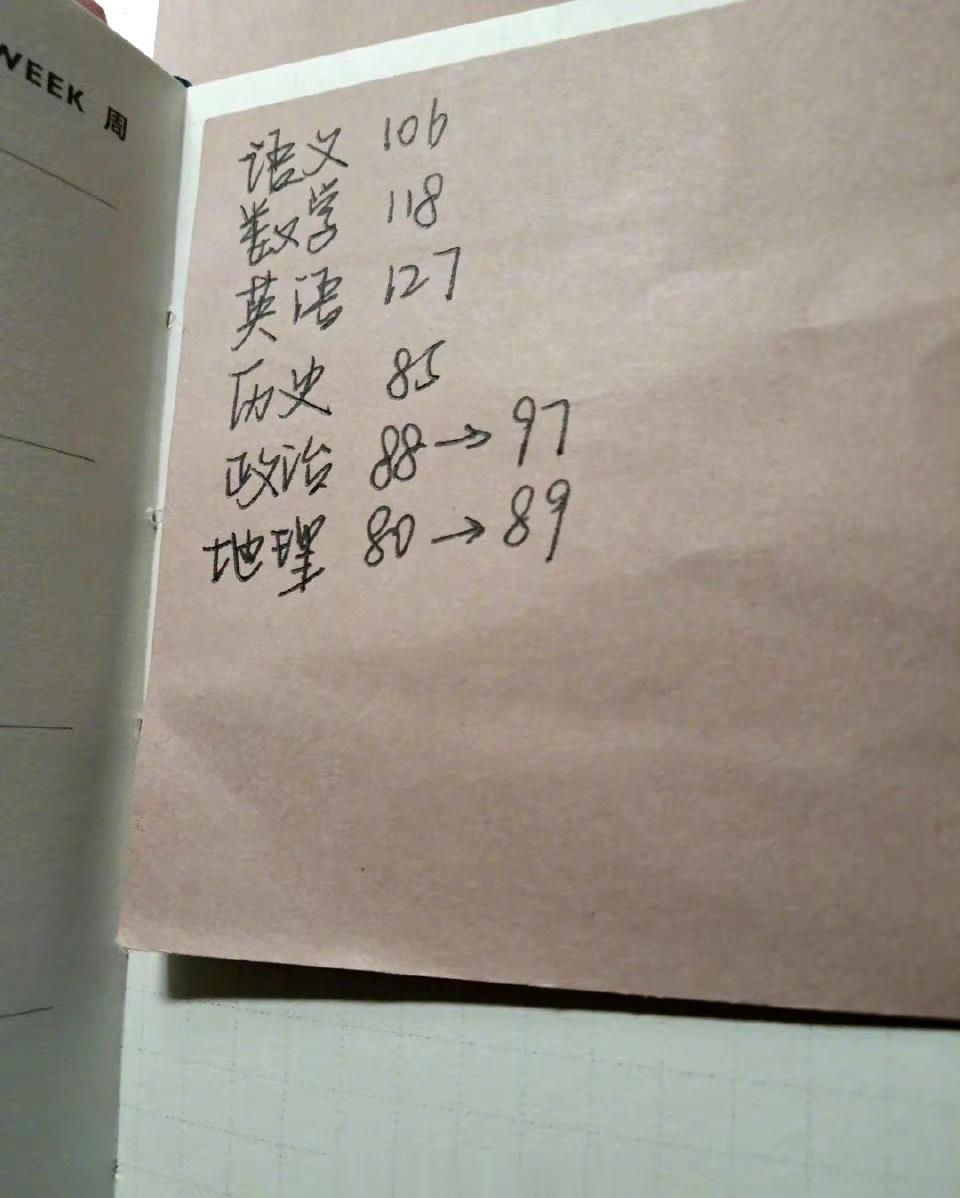 WEEK 周
语文 106
数学 118
英语 127
历史 85
政治 88→97
地理 80→89